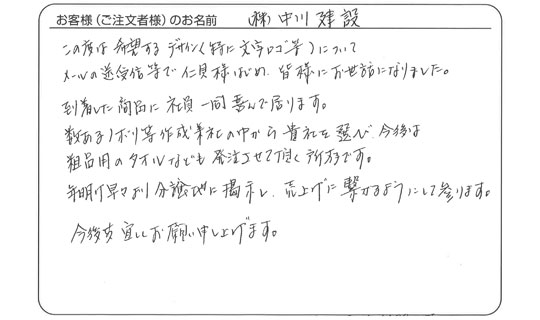 お客様(ご注文者様)のお名前 ㈱中川建設
この度は希望するデザイン(特に文字ロゴ等)について
メールの送受信等で仁貝様はじめ、皆様にお世話になりました。
到着した商品に社員一同喜んで居ります。
数あるノボリ等作成業社の中から貴社を選び、今後は
粗品用のタオルなども発注させて頂く所存です。
年明け早々より分譲地に掲示し、売上げに繋がるようにして参ります。
今後共宜しくお願い申し上げます。